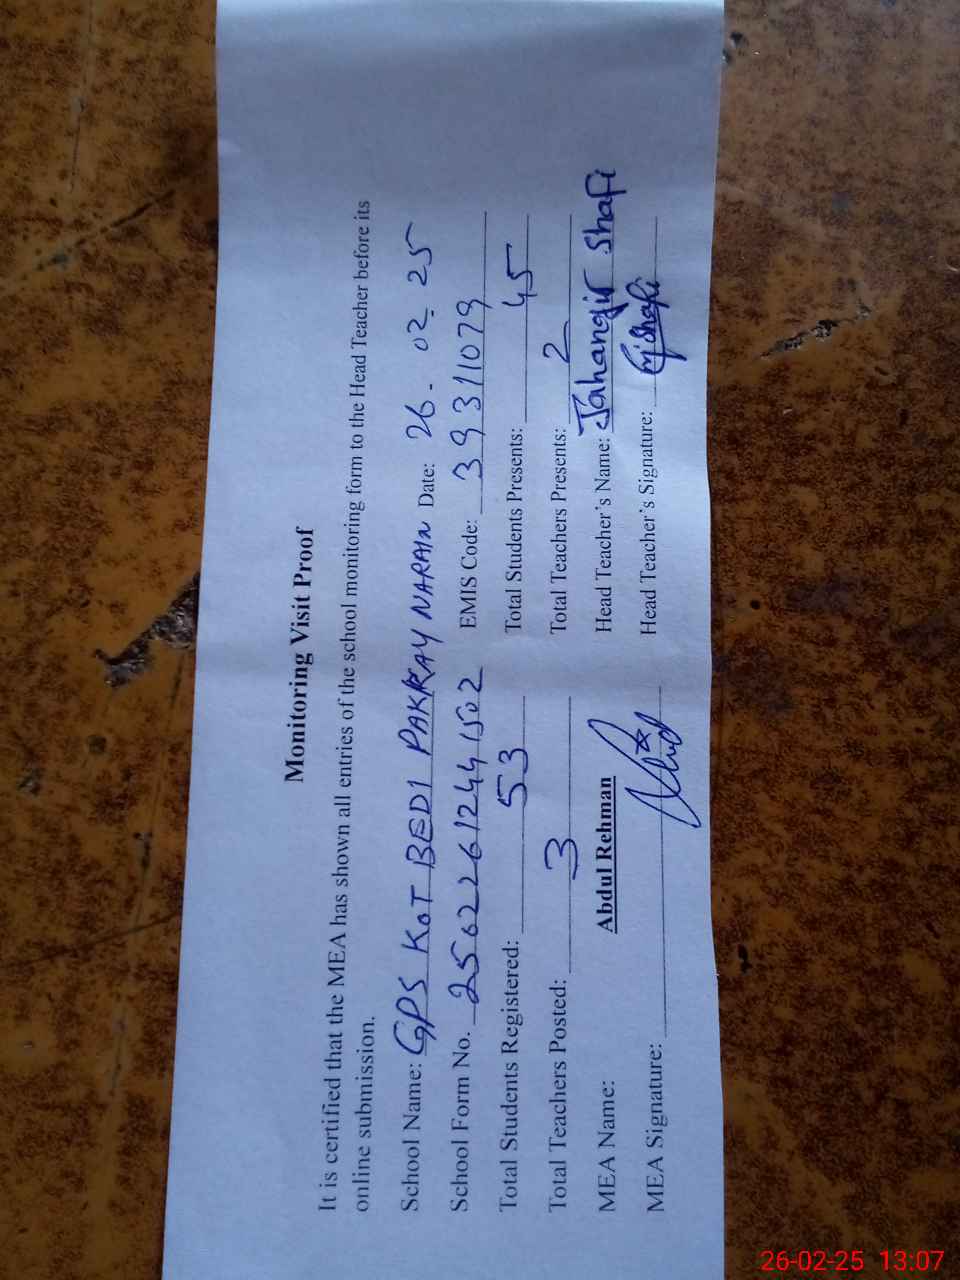 Monitoring Visit Proof
It is certified that the MEA has shown all entries of the school monitoring form to the Head Teacher before its
online submission.
School Name: GPS KOT BEDI PAKKAY NARAIN Date: 26.02.25
School Form No. 25622612441502 EMIS Code: 39311079
Total Students Registered: 53 Total Students Presents: 45
Total Teachers Posted: 3 Total Teachers Presents: 2
MEA Name: Abdul Rehman Head Teacher's Name: Jahangir Shafi
MEA Signature: Head Teacher's Signature: Shafi
26-02-25 13:07